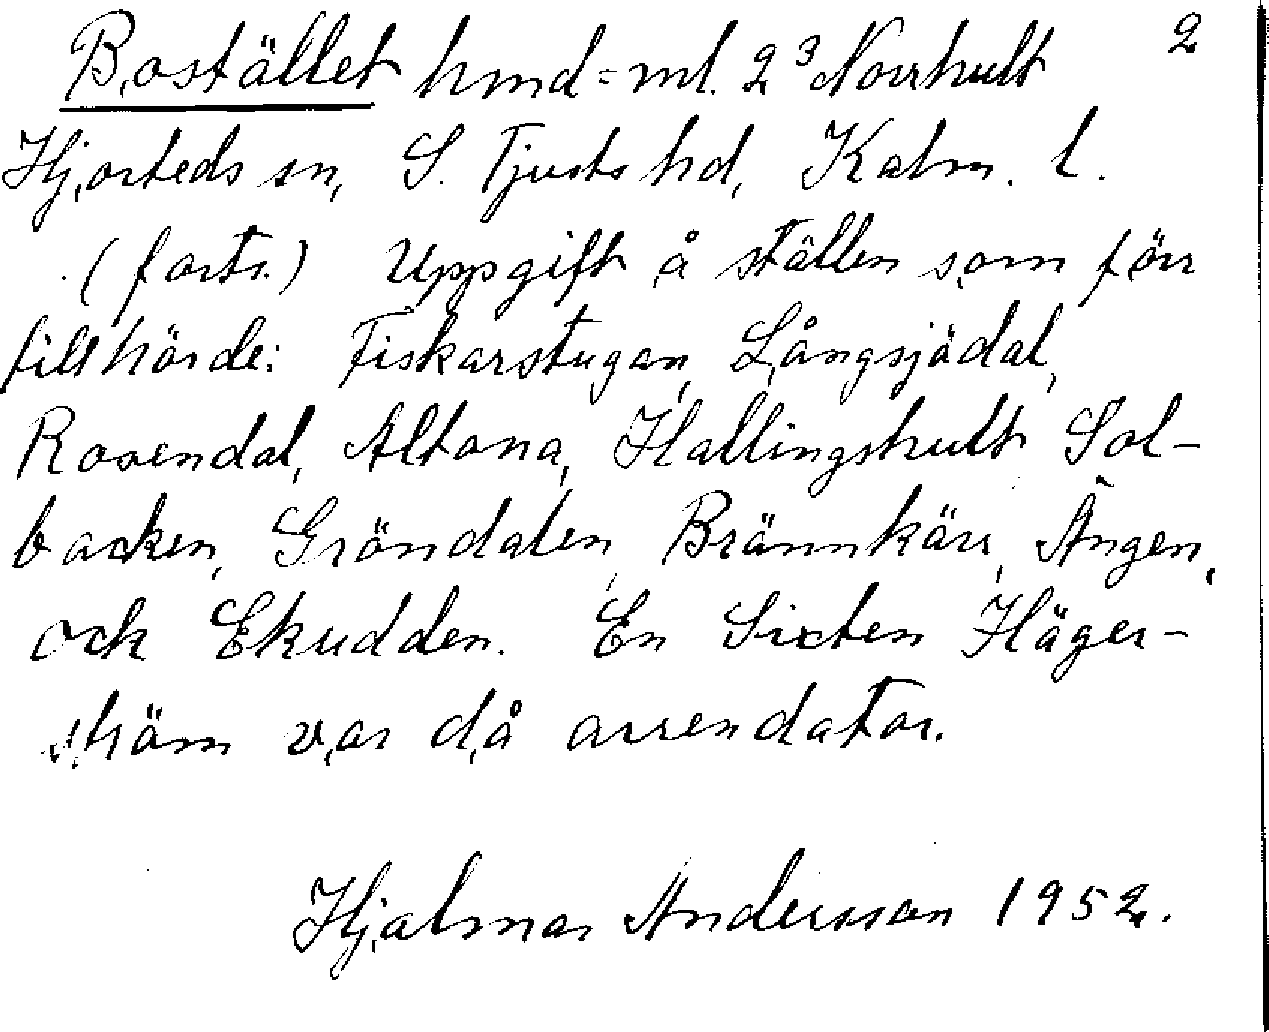 Bostället hmd=ml. 2³ Norrhult 2
Hjorteds sn, S. Tjusts hd, Kalm. l.
(forts.) Uppgift å ställen som förr
tillhörde: Fiskarstugan, Långsjödal,
Rosendal, Altona, Hallingshult Sol-
backen, Gröndalen, Brännkärr, Ängen,
ock Ekudden. En Sixten Häger-
ström var då arrendator.
Hjalmar Andersson 1952.